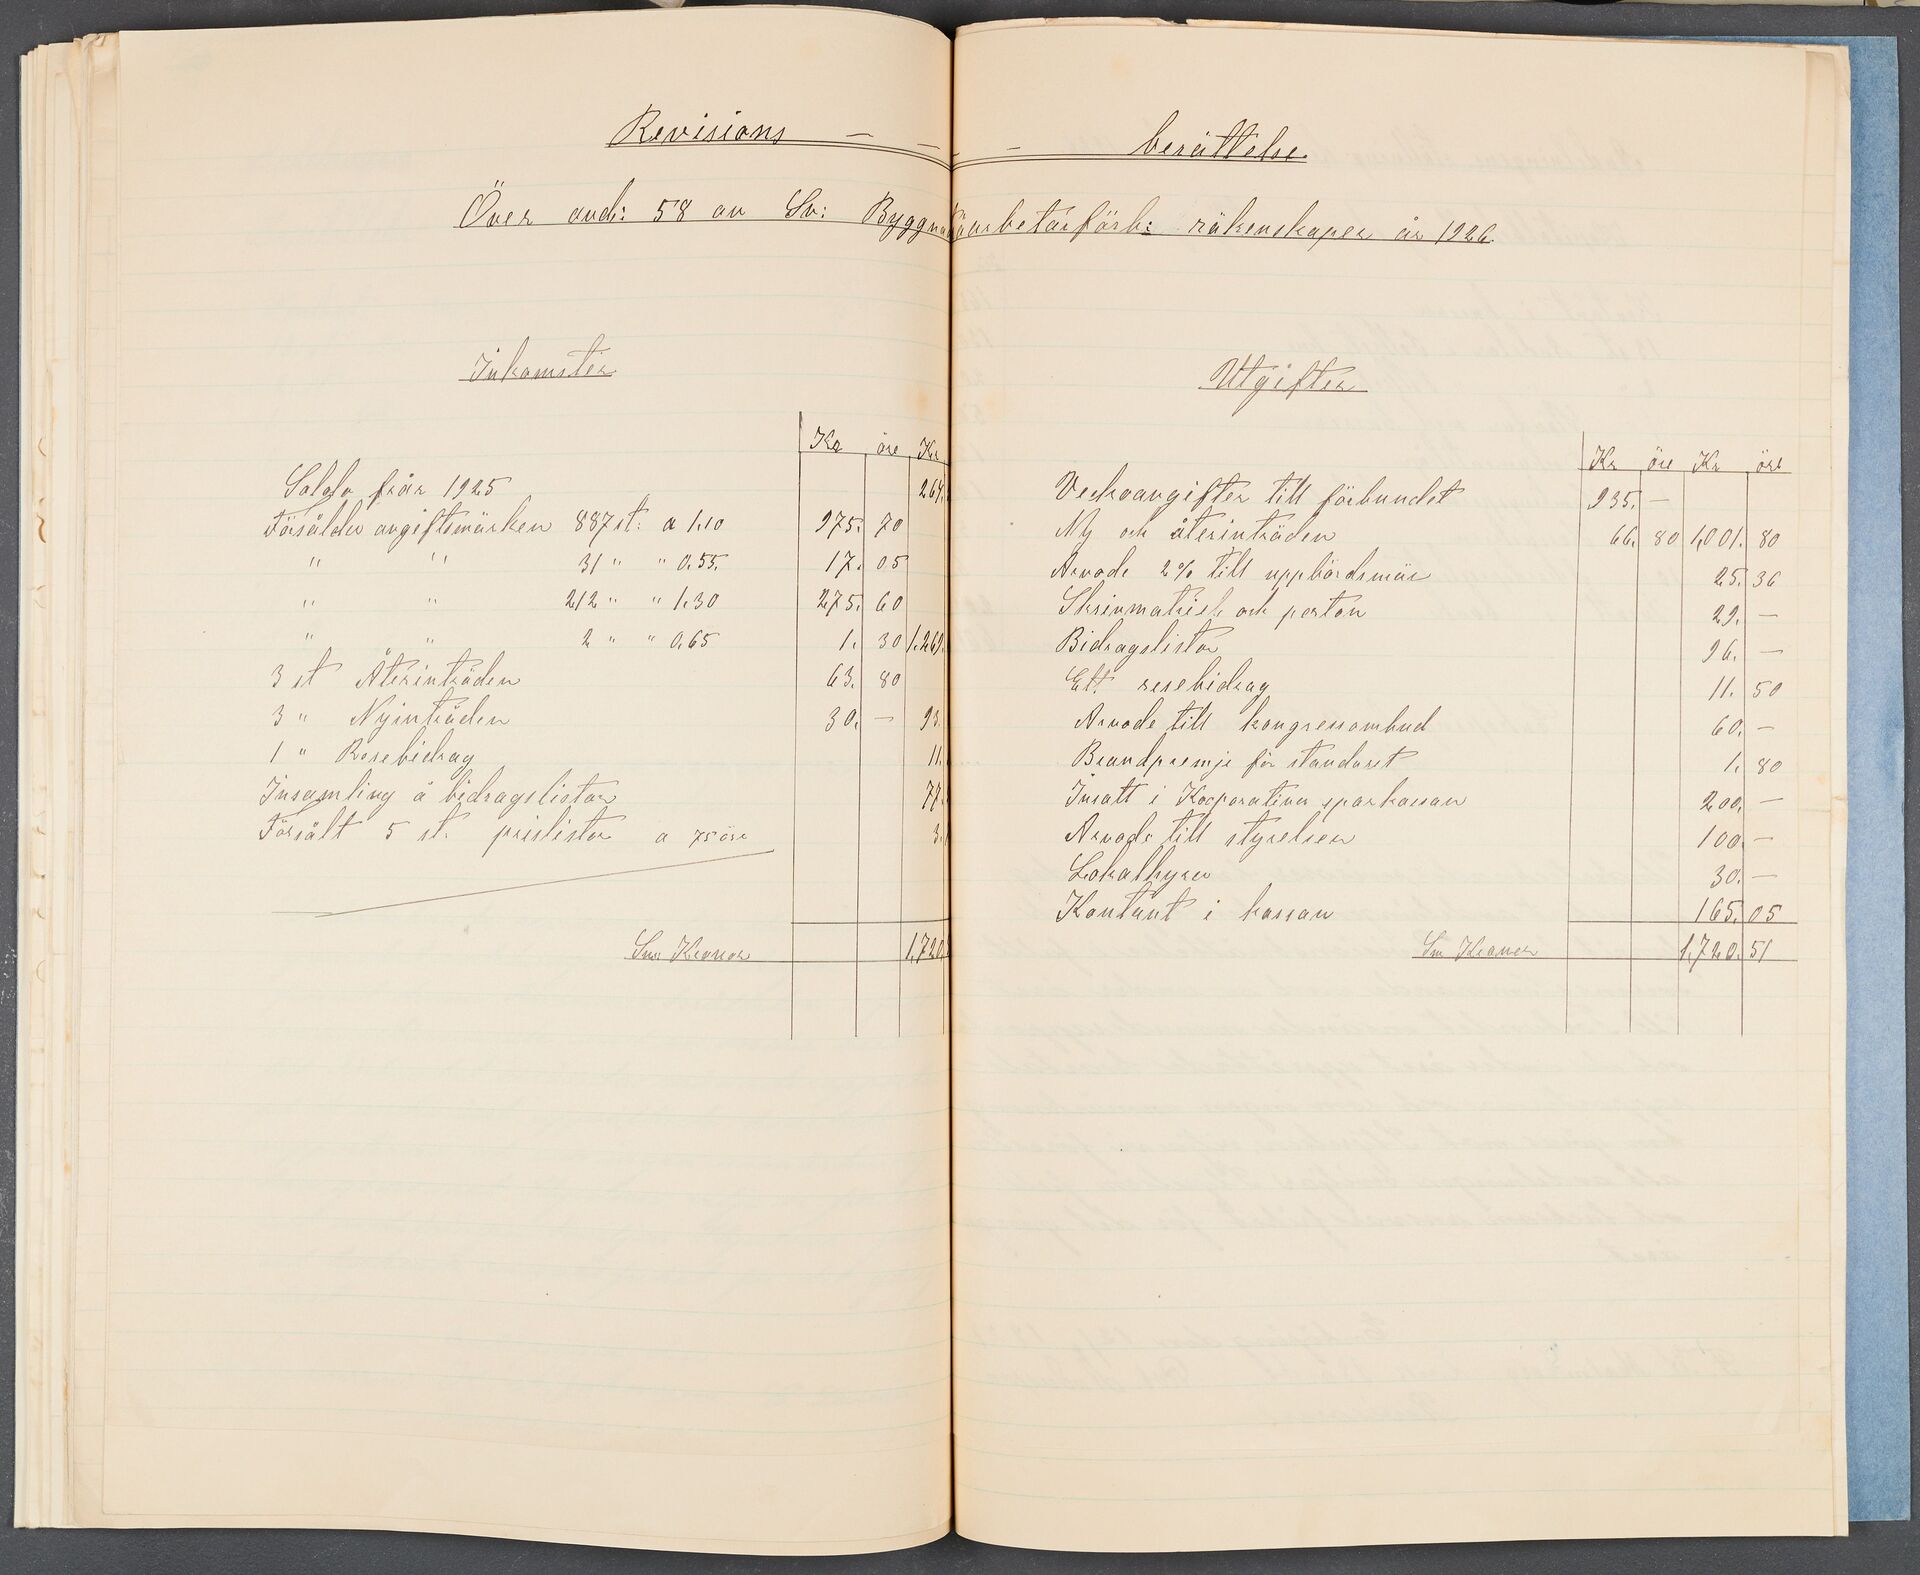 Revisions — — — berättelse
Över avd: 58 av Sv: Byggnadsarbetarförb: räkenskaper år 1926.
Inkomster
Kr öre Kr
Saldo från 1925 264.
Försålda avgiftsmärken 887 st: a 1.10 975. 70
" " 31 " " 0.55. 17. 05
" " 212 " " 1.30 275. 60
" " 2 " " 0.65 1. 30 1.269.
3 st Återinträden 63. 80
3 " Nyinträden 30. — 93.
1 " Resebidrag 11.
Insamling å bidragslistor 77.
Försålt 5 st. prislistor a 75 öre 3.
Sm: Kronor 1.720.
Utgifter
Kr öre Kr öre
Veckoavgifter till förbundet 935. —
Ny och återinträden 66. 80 1,001. 80
Arvode 2% till uppbördsmän 25. 36
Skrivmatriel och porton 29. —
Bidragslistor 96. —
Ett resebidrag 11. 50
Arvode till kongressombud 60. —
Brandpremje för standaret 1. 80
Insatt i Kooporativa sparkassan 200. —
Arvode till styrelsen 100. —
Lokalhyra 30. —
Kontant i kassan 165. 05
Sm Kronor 1,720. 51